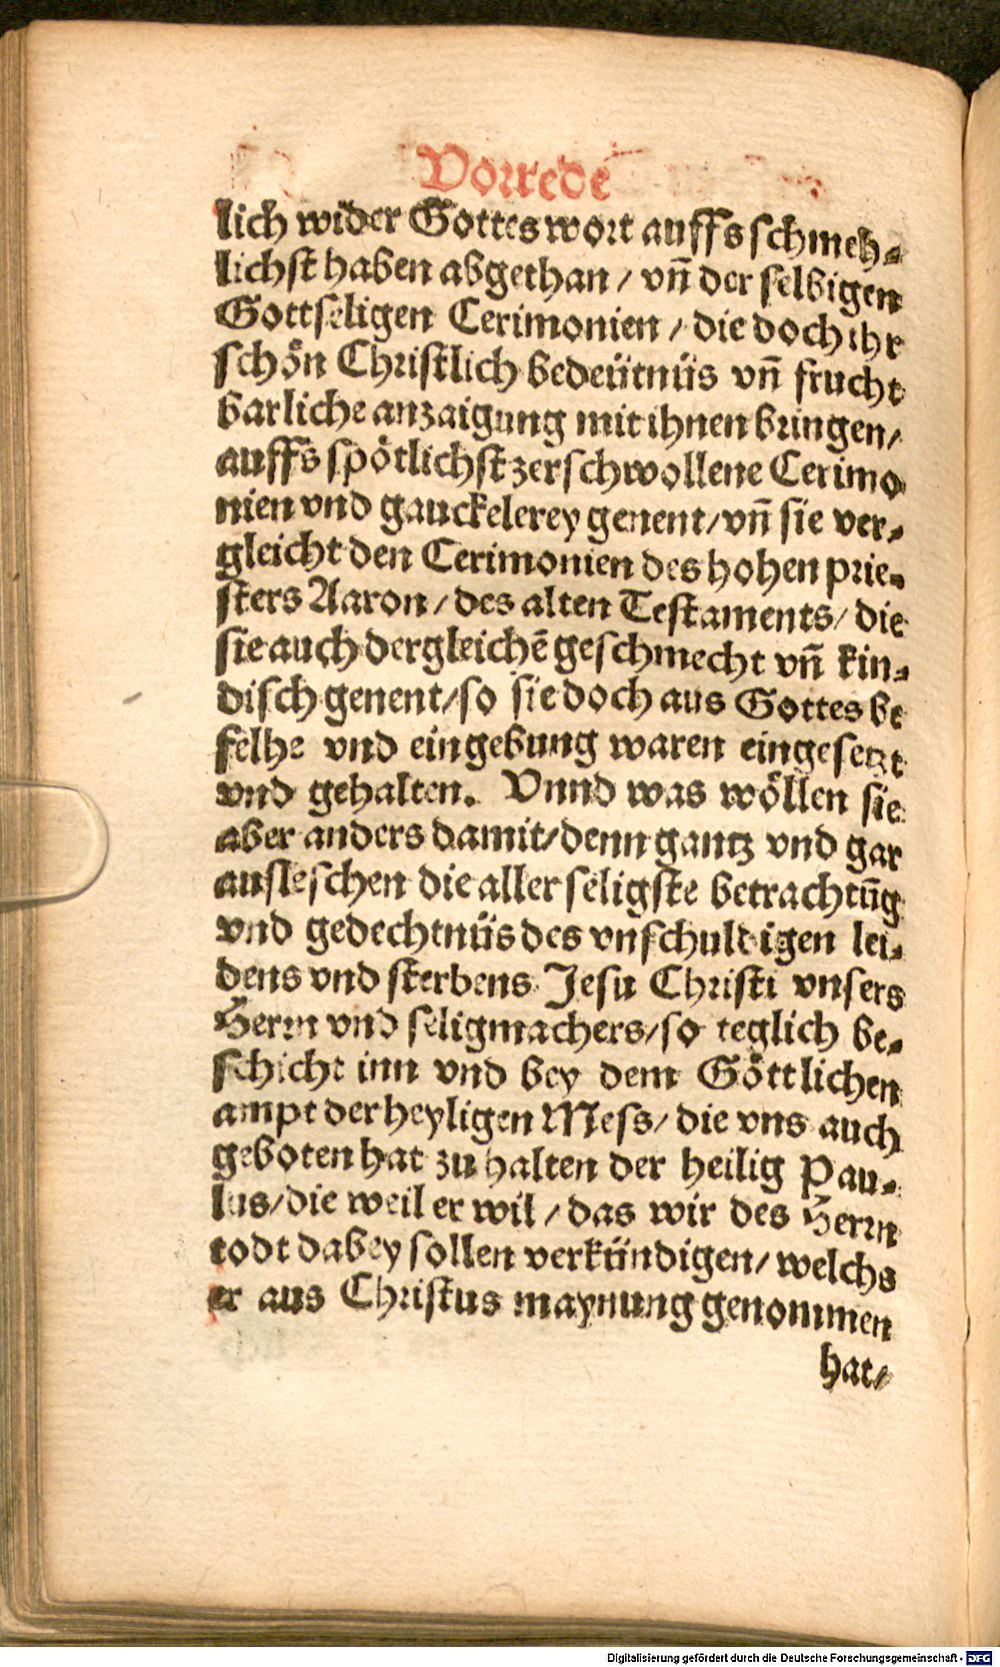 Vorrede
lich wider Gottes wort auffs schmeh-
lichst haben abgethan / vñ der selbigen
Gottseligen Cerimonien / die doch ihr
schön Christlich bedeütnüs vñ frucht
barliche anzaigung mit ihnen bringen /
auffs spötlichst zerschwollene Cerimo
nien vnd gauckelerey genent / vñ sie ver-
gleicht den Cerimonien des hohen prie-
sters Aaron / des alten Testaments / die
sie auch dergleichē geschmecht vñ kin-
disch genent / so sie doch aus Gottes be
felhe vnd eingebung waren eingesetzt
vnd gehalten. Vnnd was wöllen sie
aber anders damit / denn gantz vnd gar
ausleschen die aller seligste betrachtūg
vnd gedechtnüs des vnschuldigen lei-
dens vnd sterbens Jesu Christi vnsers
Herrn vnd seligmachers / so teglich be-
schicht inn vnd bey dem Göttlichen
ampt der heyligen Mess / die vns auch
geboten hat zu halten der heilig Pau-
lus / die weil er wil / das wir des Herrn
todt dabey sollen verkündigen / welchs
er aus Christus maynung genommen
hat /
Digitalisierung gefördert durch die Deutsche Forschungsgemeinschaft - DFG